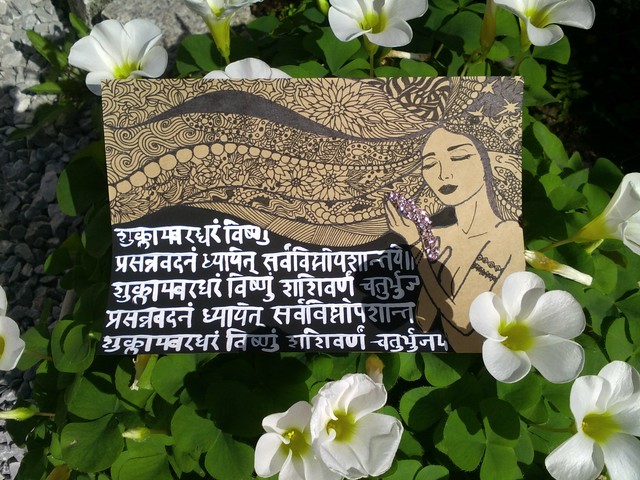 शुक्लाम्बरधरं विष्णु
प्रसन्नवदनं ध्यायेत् सर्वविघ्नोपशान्तये।।
शुक्लाम्बरधरं विष्णुं शशिवर्णं चतुर्भुज
प्रसन्नवदनं ध्यायेत् सर्वविघ्नोपशान्त
शुक्लाम्बरधरं विष्णुं शशिवर्णं चतुर्भुजम